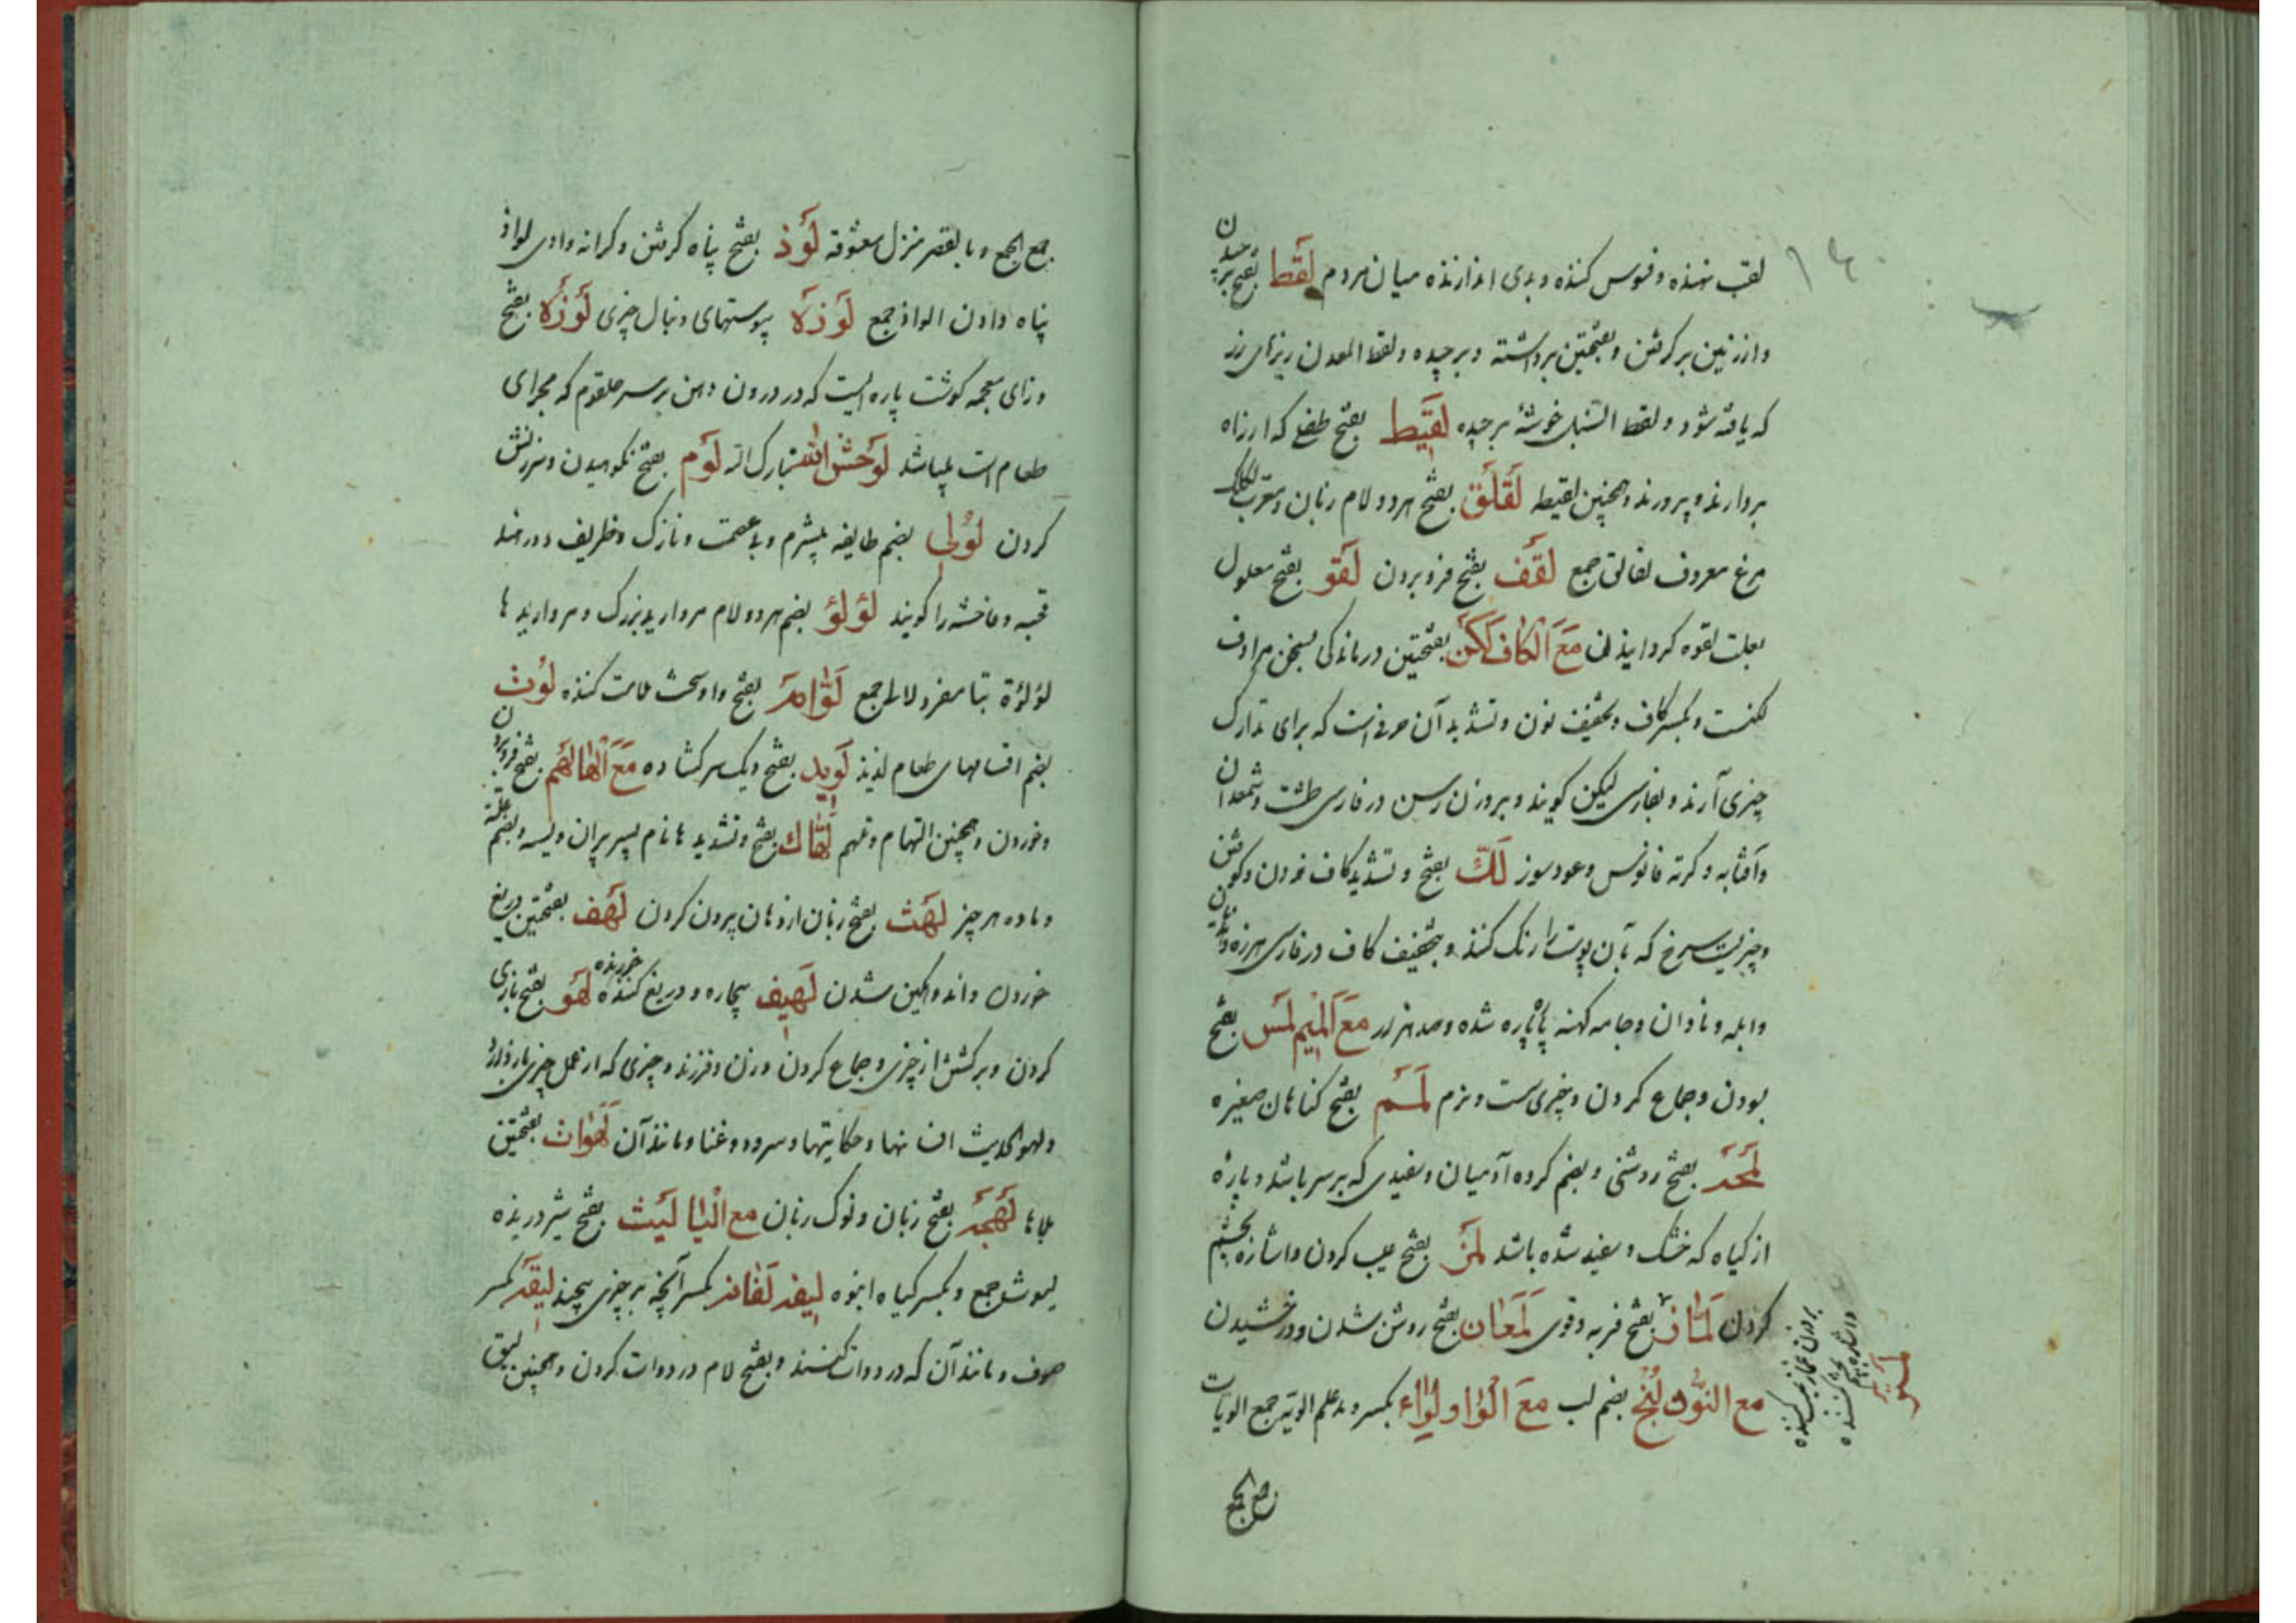 لقب نهنده و فسوس کننده و بدی اندازنده میان مردم لَقَط بفتح برچیدن
و از زمین بر گرفتن و بفتحتین برداشته و برچیده و لقط المعدن ریزهای زر
که یافته شود و لقط السنبل خوشهٔ برچیده لَقِیَط بفتح طفلی که از راه
بردارند و پرورند و همچنین لقیطه لَقْلَق بفتح هر دو لام زبان و معرب لکلک
مرغ معروف لقالق جمع لَقَف بفتح فرو بردن لَقَو بفتح معلول
بعلت لقوه کردانیدن مَعَ الْکَاف لَکَن بفتحتین درماندکی بسخن مرادف
لکنت و بکسر کاف و تخفیف نون و تشدید آن حرفیست که برای تدارک
چیزی آرند و بفارسی لیکن کویند و بروزن رسن در فارسی طشت و شمعدان
و آفتابه و کرته فانوس و عود سوز لَکّ بفتح و تشدید کاف خوردن و کوفتن
و چیزیست سرخ که بآن پوست را رنک کنند و بتخفیف کاف در فارسی هرزه
و ابله و نادان و جامه کهنه پاره پاره شده و صد هزار مَعَ الْمیم لَمس بفتح
بودن و جماع کردن و چیزی ست و نرم لَمَم بفتح کناهان صغیره
لَمحَه بفتح روشنی و بضم کروه آدمیان و سفیدی که بر سر باشد و پارهٔ
از کیاه که خشک و سفید شده باشد لَمَز بفتح عیب کردن و اشاره بچشم
کردن بفتح فربه و قوی لَمَعَان بفتح روشن شدن و درخشیدن
مع النّون لُنْج بضم لب مَعَ الْوَاو لِوَاء بکسر و مد علم الویة جمع الویات
بروزن غماز عیب کننده
و اشاره بچشم کننده
جمع
جمع الجمع و بالقصر منزل معشوقه لَوَذ بفتح پناه کرفتن و کرانه وادی لواذ
پناه دادن الواذ جمع لَوذَه پوستهای دنبال چیزی لَوْزَه بفتح
و زای معجمه کوشت پاره ایست که در درون دهن بر سر حلقوم که مجرای
طعام است میباشد لَوحَشَ الله تبارک الله لَوم بفتح نکوهیدن و سرزنش
کردن لُوْلِی بضم طایفه بیشرم و بی عصمت و نازک و ظریف و در هند
قحبه و فاحشه را کویند لُؤلُؤ بضم هر دو لام مروارید بزرک و مرواریدها
لؤلؤة بتا مفرد لالی جمع لَوَّامه بفتح واو سخت ملامت کننده لُوث
بضم اقسامهای طعام لذیذ لَوِید بفتح دیک سر کشاده مَعَ الْهَا لَهم بفتح فرو بردن
و خوردن و همچنین التهام و تلهم لَهَّاک بفتح و تشدید ها نام پسر پیران ویسه و بضم
و ماده هر چیز لَهَث بفتح زبان از دهان بیرون کردن لَهَف بفتحتین دریغ
خوردن و اندوهکین شدن لَهِیف بیچاره و دریغ خورنده کننده لَهَو بفتح بازی
کردن و بر کشتن از چیزی و جماع کردن و زن و فرزند و چیزی که از عمل چیزی باز دارد
و لهو الحدیث افسانها و حکایتها و سرود و غنا و مانند آن لَهَوَات بفتحتین
لَهجَه بفتح زبان و نوک زبان مع الْیَا لَیث بفتح شیر درنده
لیوث جمع و بکسر کیاه انبوه لیفه لَفَافه بکسر آنچه بر چیزی پیچند لِیقَه بکسر
صوف و مانند آن که در دوات کنند و بفتح لام در دوات کردن و همچنین لیق